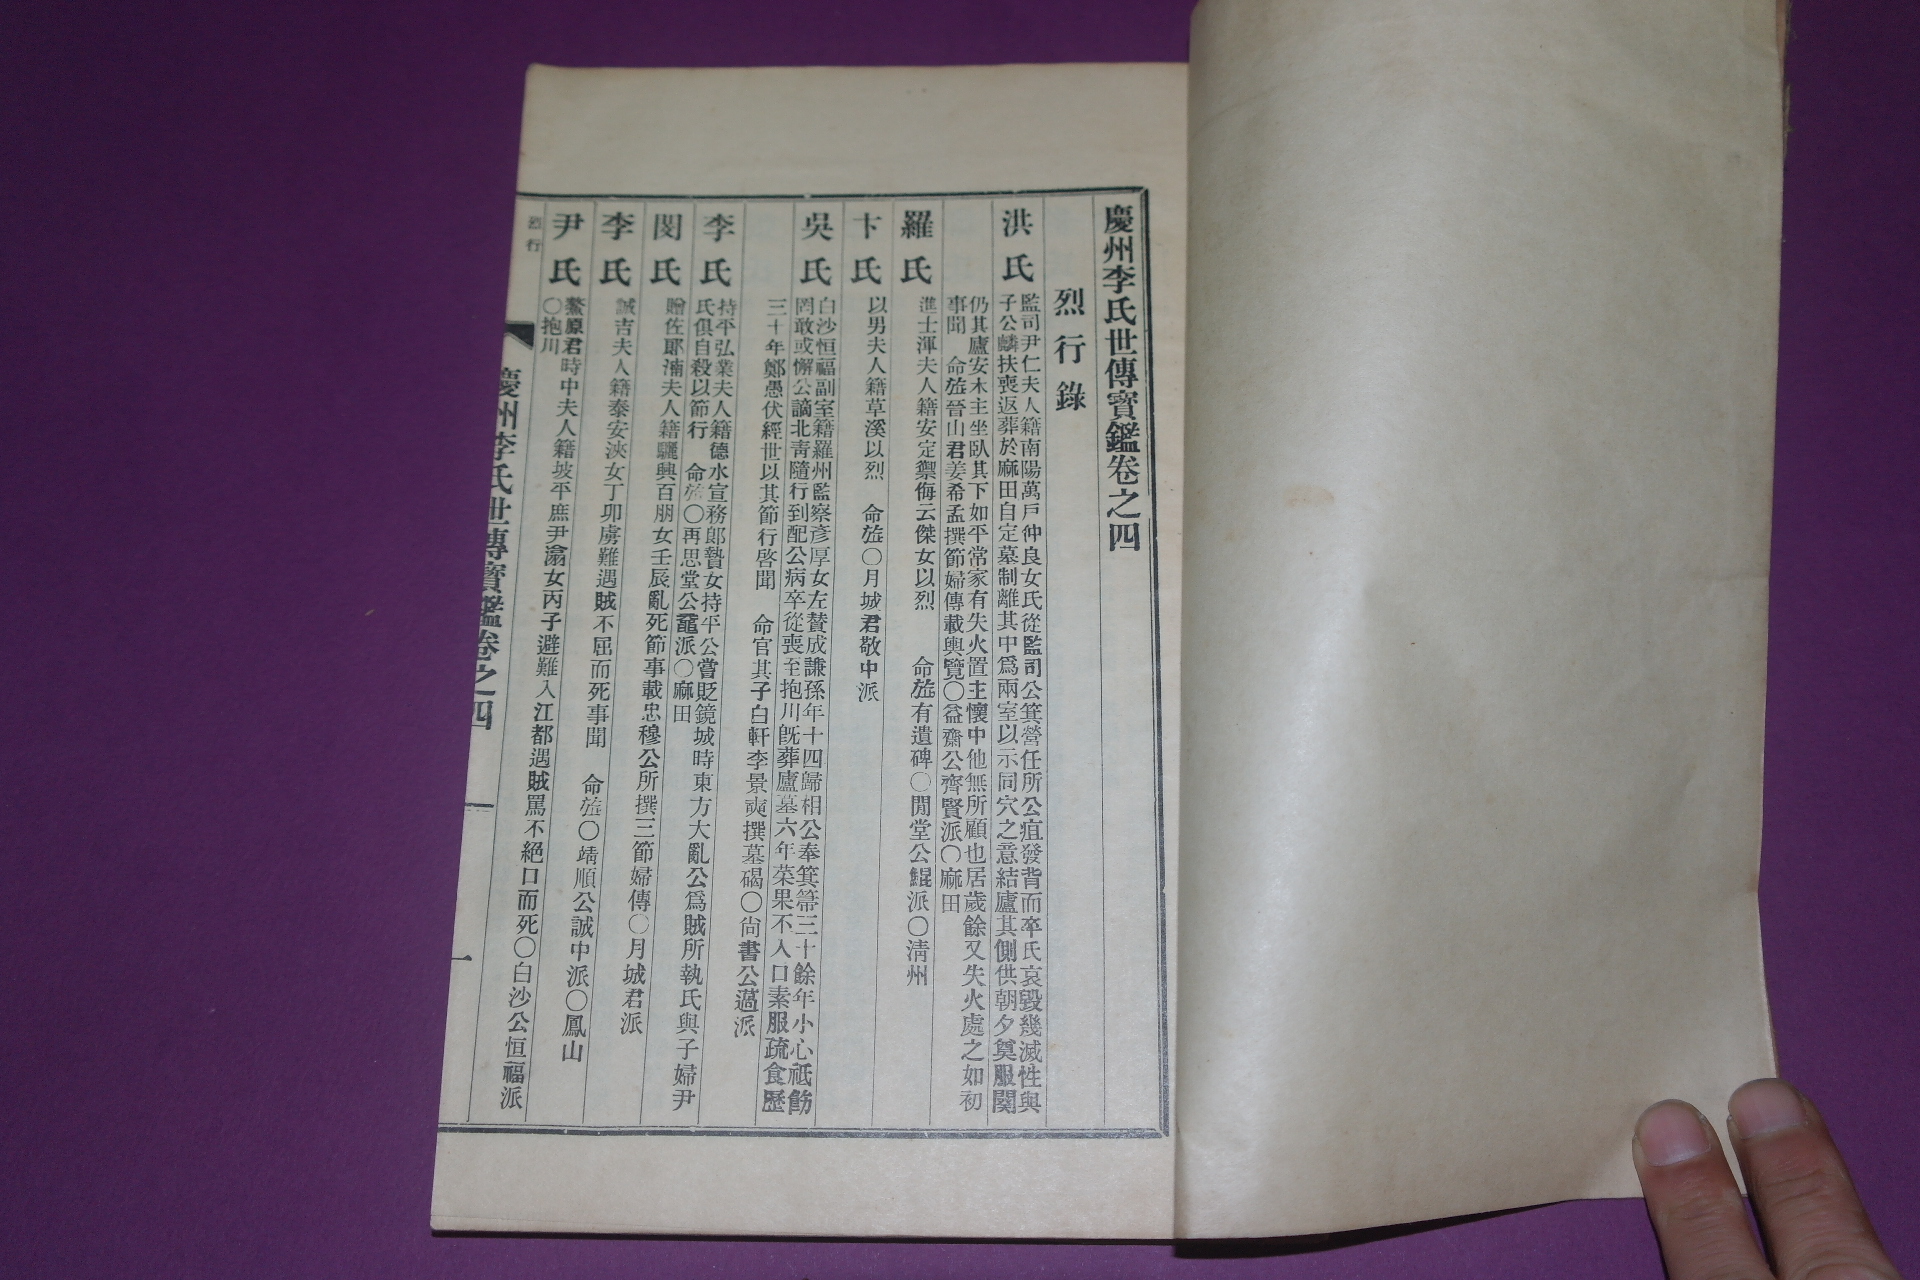 慶州李氏世傳寶鑑卷之四
烈行錄
洪氏
監司尹仁夫人籍南陽萬戶仲良女氏從監司公箕營任所公疽發背而卒氏哀毀幾滅性與
子公麟扶喪返葬於麻田自定墓制離其中爲兩室以示同穴之意結廬其側供朝夕奠服闋
仍其廬安木主坐臥其下如平常家有失火置主懷中他無所顧也居歲餘又失火處之如初
事聞 命旌晉山君姜希孟撰節婦傳載輿覽〇益齋公齊賢派〇麻田
羅氏
進士渾夫人籍安定禦侮云傑女以烈 命旌有遺碑〇閒堂公鯤派〇淸州
卞氏
以男夫人籍草溪以烈 命旌〇月城君敬中派
吳氏
白沙恒福副室籍羅州監察彥厚女左贊成謙孫年十四歸相公奉箕箒三十餘年小心祗飭
罔敢或懈公謫北靑隨行到配公病卒從喪至抱川旣葬廬墓六年菜果不入口素服疏食歷
三十年鄭愚伏經世以其節行啓聞 命官其子白軒李景奭撰墓碣〇尙書公薖派
李氏
持平弘業夫人籍德水宣務郞贄女持平公嘗貶鏡城時東方大亂公爲賊所執氏與子婦尹
氏俱自殺以節行 命旌〇再思堂公黿派〇麻田
閔氏
贈佐郞湳夫人籍驪興百朋女壬辰亂死節事載忠穆公所撰三節婦傳〇月城君派
李氏
誠吉夫人籍泰安浹女丁卯虜難遇賊不屈而死事聞 命旌〇靖順公誠中派〇鳳山
尹氏
鰲原君時中夫人籍坡平庶尹滃女丙子避難入江都遇賊罵不絕口而死〇白沙公恒福派
〇抱川
烈行
慶州李氏世傳寶鑑卷之四
一